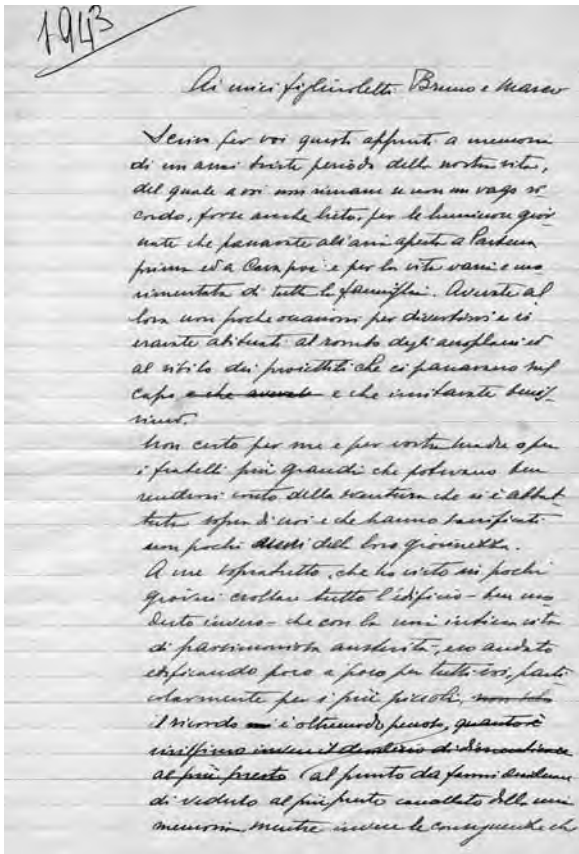 1943
Ai miei figliuoletti Bruno e Marco
Scrivo per voi questi appunti a memoria
di un assai triste periodo della nostra vita,
del quale a voi non rimane se non un vago ri
cordo, forse anche lieto, per le luminose gior
nate che passavate all'aria aperta a
prima ed a Cava poi e per la vita varia e mo
vimentata di tutta la famiglia. Aveste al
lora non poche occasioni per divertirvi e vi
eravate abituati al rombo degli aeroplani ed
al sibilo dei proiettili che ci passavano sul
capo e che avevate e che imitavate benis
simo.
Non certo per me e per vostra madre o per
i fratelli più grandi che potevano ben
rendersi conto della sventura che si è abbat
tuta sopra di noi e che hanno sacrificati
non pochi della loro giovinezza.
A me sopratutto, che ho visto in pochi
giorni crollare tutto l'edificio - ben mo
desto invero - che con la mia intiera vita
di parsimoniosa austerità, ero andato
edificando poco a poco per tutti voi, parti
colarmente per i più piccoli, non solo
il ricordo è oltremodo penoso, quanto è
vivissimo invece il desiderio di dimenticare
al più presto al punto da farmi
di vederlo al più presto cancellato dalla mia
memoria, mentre invece le conseguenze che